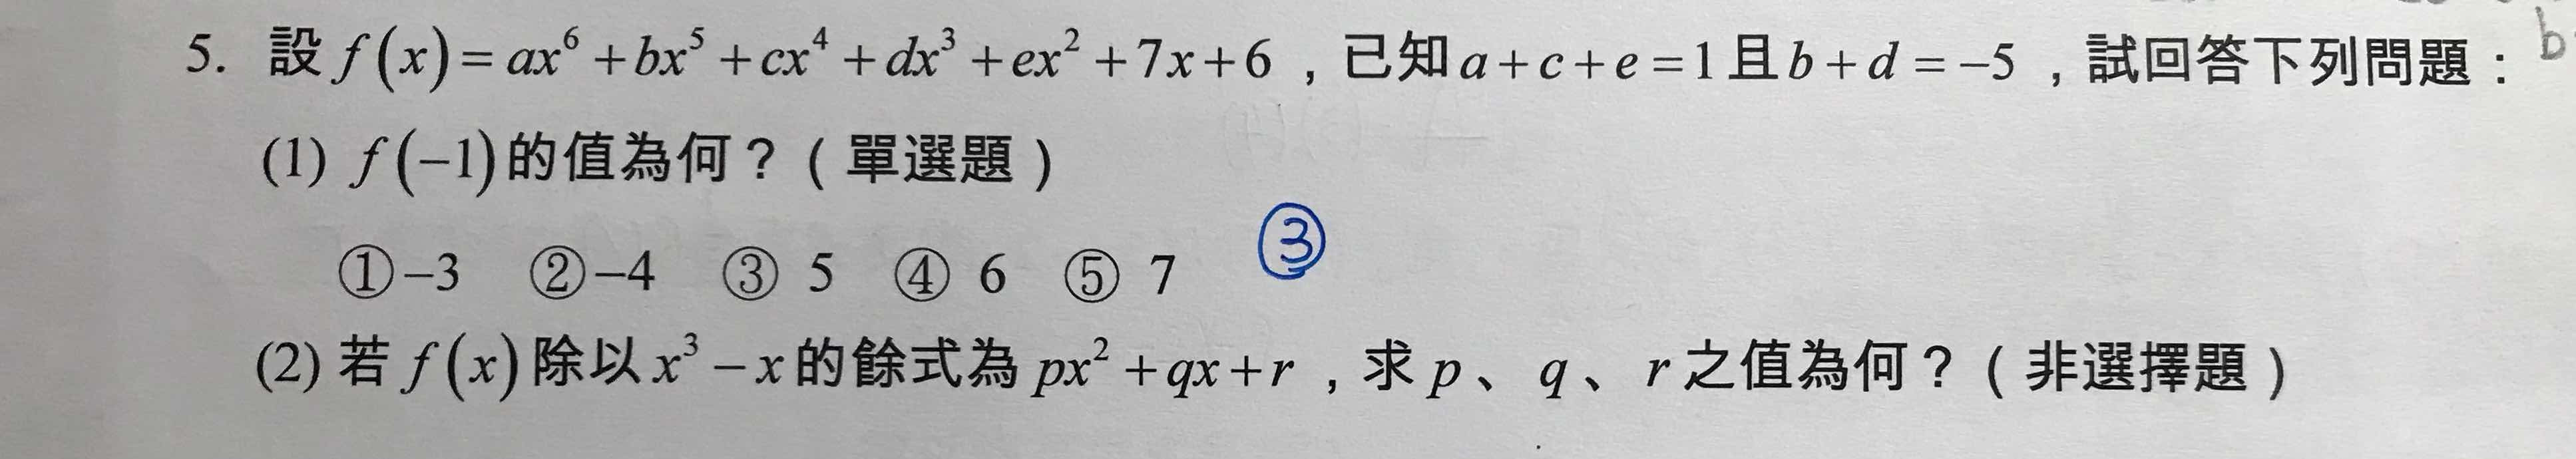 5. 設 f(x)=ax⁶+bx⁵+cx⁴+dx³+ex²+7x+6，已知a+c+e=1且b+d=−5，試回答下列問題： b
(1) f(−1)的值為何？（單選題）
①−3 ②−4 ③ 5 ④ 6 ⑤ 7 ③
(2) 若 f(x)除以x³−x的餘式為px²+qx+r，求p、q、r之值為何？（非選擇題）